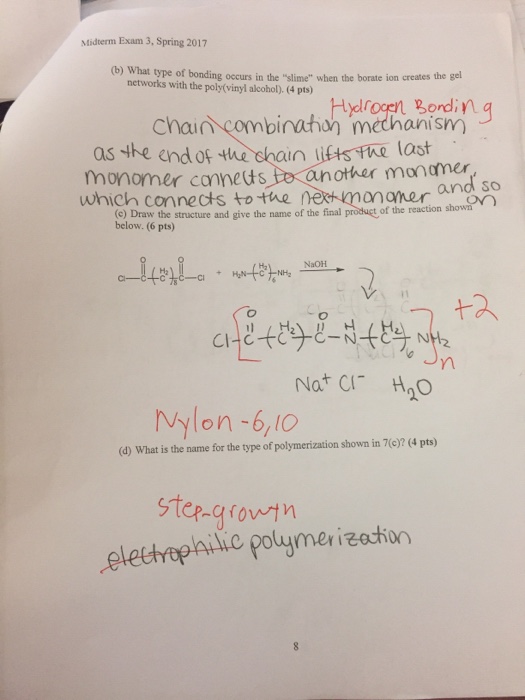 Midterm Exam 3, Spring 2017
(b) What type of bonding occurs in the "slime" when the borate ion creates the gel
networks with the poly(vinyl alcohol). (4 pts)
Hydrogen Bonding
Chain combination mechanism
as the end of the chain lifts the last
monomer connects to another monomer,
which connects to the next monomer and so on
(c) Draw the structure and give the name of the final product of the reaction shown
below. (6 pts)
O O
Cl C (C H₂)₈ C Cl + H₂N (C H₂)₆ NH₂ NaOH
+2
O O H
Cl [ C (C H₂) C - N (C H₂)₆ NH₂ ]n
Na+ Cl- H₂O
Nylon-6,10
(d) What is the name for the type of polymerization shown in 7(c)? (4 pts)
step-growth
electrophilic polymerization
8